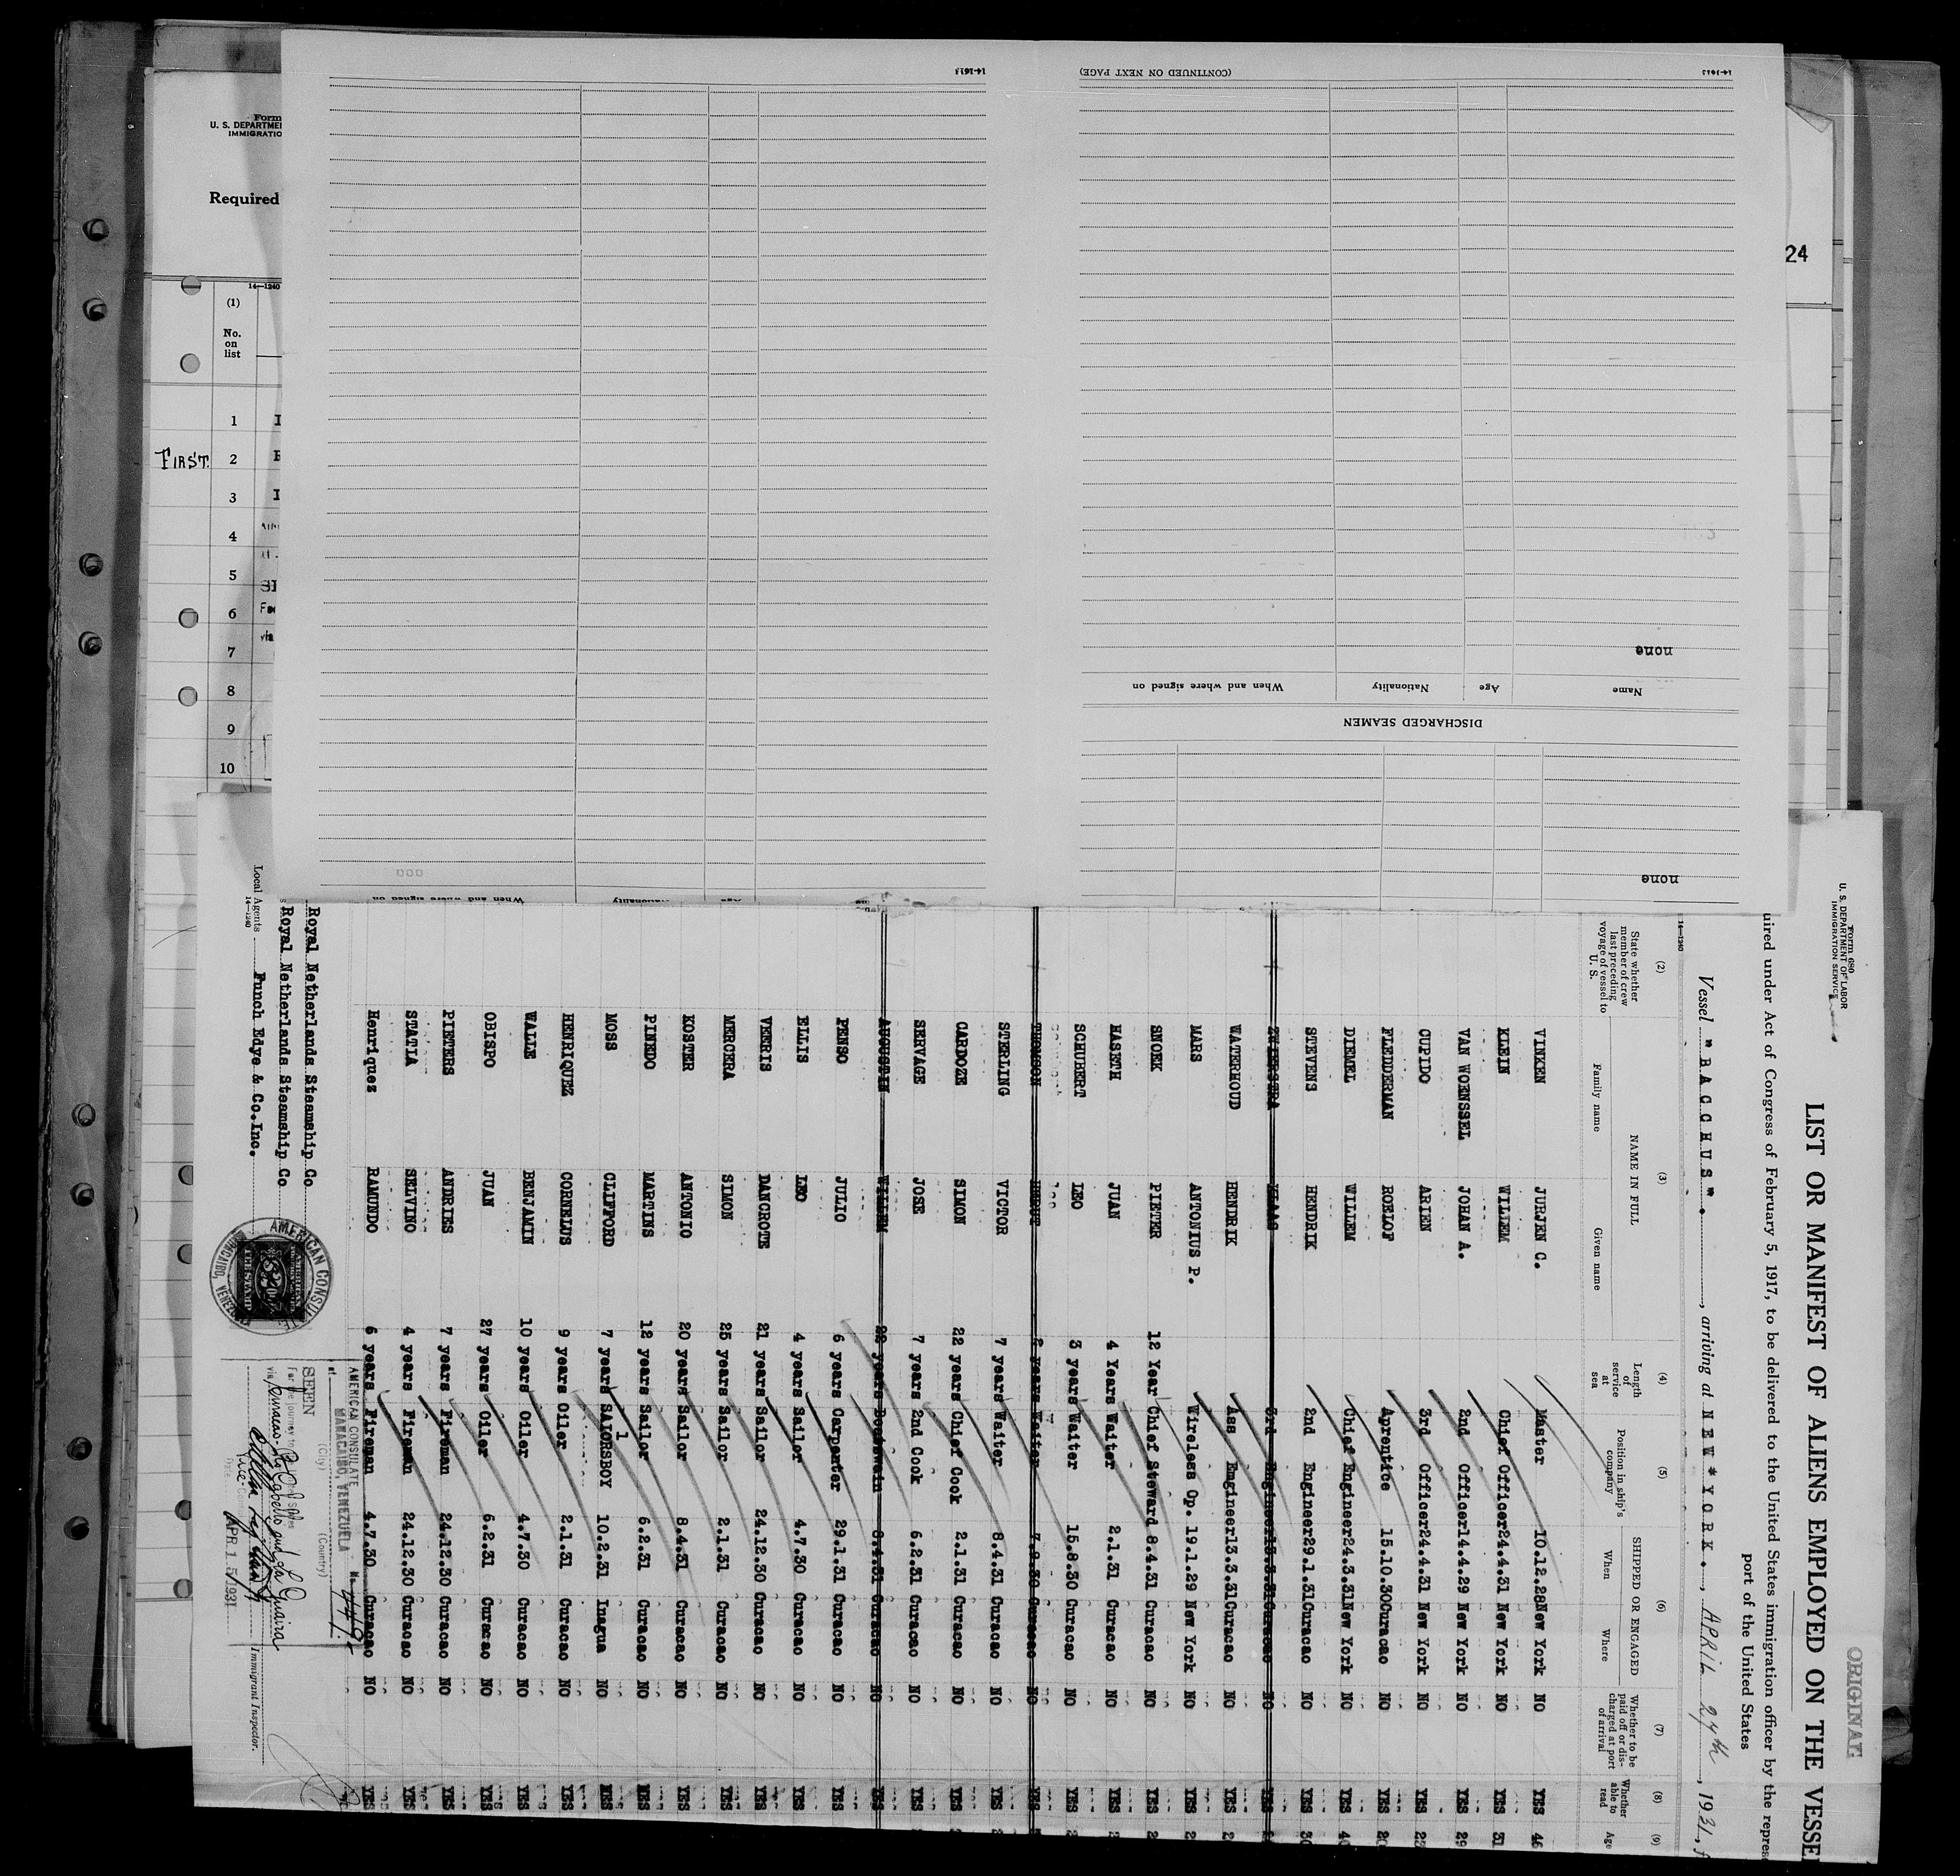 Form
U. S. DEPARTME
IMMIGRATIO
Required
14—1240
(1)
No.
on
list
1
FIRST. 2
3
4
5
6
7
8
9
10
24
(CONTINUED ON NEXT PAGE)
none
Name Age Nationality When and where signed on
DISCHARGED SEAMEN
none
When and where signed on
ORIGINAL
Form 680
U. S. DEPARTMENT OF LABOR
IMMIGRATION SERVICE
LIST OR MANIFEST OF ALIENS EMPLOYED ON THE VESSE
uired under Act of Congress of February 5, 1917, to be delivered to the United States immigration officer by the represe
port of the United States
Vessel "BACCHUS". , arriving at NEW*YORK. , APRIL 27th , 1931, f
14—1240
(2) (3) (4) (5) (6) (7) (8) (9)
State whether member of crew last preceding voyage of vessel to U. S.
NAME IN FULL
Family name Given name
Length of service at sea
Position in ship's company
SHIPPED OR ENGAGED
When Where
Whether to be paid off or discharged at port of arrival
Whether able to read
Age
VINKEN JURJEN C. Master 10.12.28New York NO YES 46
KLEIN WILLEM Chief Officer24.4.31 New York NO YES 31
VAN WOENSSEL JOHAN A. 2nd Officer14.4.29 New York NO YES 29
CUPIDO ARIEN 3rd Officer24.4.31 New York NO YES 23
FLEDDERMAN ROELOF Aprentice 15.10.30Curacao NO YES 20
DIEMEL WILLEM Chief Engineer24.3.31New York NO YES 40
STEVENS HENDRIK 2nd Engineer29.1.31Curacao NO YES 30
ZWIERSTRA KLAAS 3rd Engineer13.3.31Curacao NO YES
WATERHOUD HENDRIK Ass Engineer13.3.31Curacao NO YES 2
MARS ANTONIUS P. Wireless Op. 19.1.29 New York NO YES 2
SNOEK PIETER 12 Year Chief Steward 8.4.31 Curacao NO YES 2
HASETH JUAN 4 Years Waiter 2.1.31 Curacao NO YES 2
SCHUBERT LEO 3 years Waiter 15.8.30 Curacao NO YES 2
THOMSON 2 years Waiter 7.9.30 Curacao NO YES
STERLING VICTOR 7 years Waiter 8.4.31 Curacao NO YES 2
CARDOZE SIMON 22 years Chief Cook 2.1.31 Curacao NO YES
SERVAGE JOSE 7 years 2nd Cook 6.2.31 Curacao NO YES
AUGUSTIN WILLEM 22 years Bootswein 8.4.31 Curacao NO YES
PENSO JULIO 6 years Carpenter 29.1.31 Curacao NO YES
ELLIS LEO 4 years Sailor 4.7.30 Curacao NO YES
VEERIS DANCROTE 21 years Sailor 24.12.30 Curacao NO YES
MERCERA SIMON 25 years Sailor 2.1.31 Curacao NO YES
KOSTER ANTONIO 20 years Sailor 8.4.31 Curacao NO YES
PINEDO MARTINS 12 years Sailor 6.2.31 Curacao NO YES
MOSS CLIFFORD 7 years SAIORSBOY 10.2.31 Inagua NO YES
l
HENRIQUEZ CORNELUS 9 years Oiler 2.1.31 Curacao NO YES
WALLE BENJAMIN 10 years Oiler 4.7.30 Curacao NO YES
OBISPO JUAN 27 years Oiler 6.2.31 Curacao NO YES
PIETERS ANDRIES 7 years Fireman 24.12.30 Curacao NO YES
STATIA SELVINO 4 years Fireman 24.12.30 Curacao NO YES
Henriquez RAMUNDO 6 years Fireman 4.7.30 Curacao NO YES
Royal Netherlands Steamship Co
Royal Netherlands Steamship Co
Local Agents Funch Edye & Co.Inc.
14—1240
AMERICAN CONSULATE
MARACAIBO, VENEZUELA
AMERICAN
FEE STAMP
AMERICAN CONSULATE
MARACAIBO, VENEZUELA
(City) (Country)
SEEN
For the journey to the United States
via Curacao
Vice
Date APR 15 1931
Immigrant Inspector.